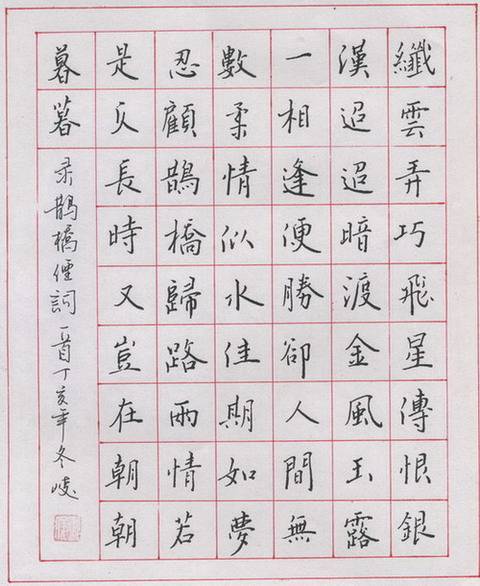 纖雲弄巧飛星傳恨銀
漢迢迢暗渡金風玉露
一相逢便勝卻人間無
數柔情似水佳期如夢
忍顧鵲橋歸路兩情若
是久長時又豈在朝朝
暮暮
录鵲橋僊詞一首丁亥年冬